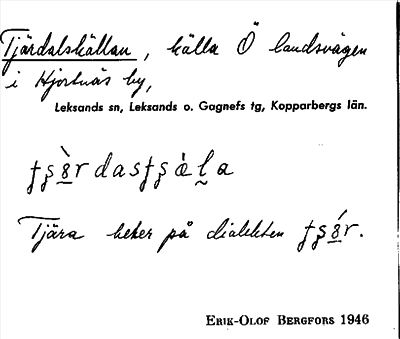 Tjärdalskällan, källa Ö landsvägen
i Hjortnäs by,
Leksands sn, Leksands o. Gagnefs tg, Kopparbergs län.
Tjära heter på dialekten
ERIK-OLOF BERGFORS 1946